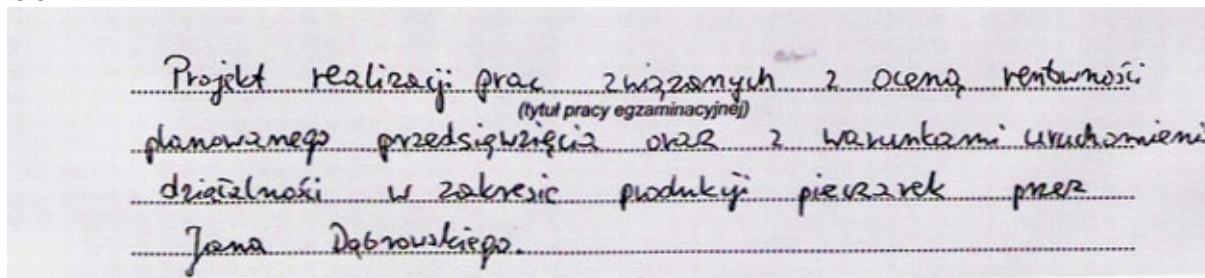 Projekt realizacji prac związanych z oceną rentowności
(tytuł pracy egzaminacyjnej)
planowanego przedsięwzięcia oraz z warunkami uruchomieni
działalności w zakresie produkcji pieczarek przez
Jana Dąbrowskiego.